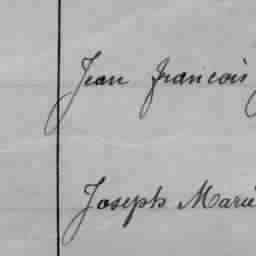 Jean francois
Joseph Marie